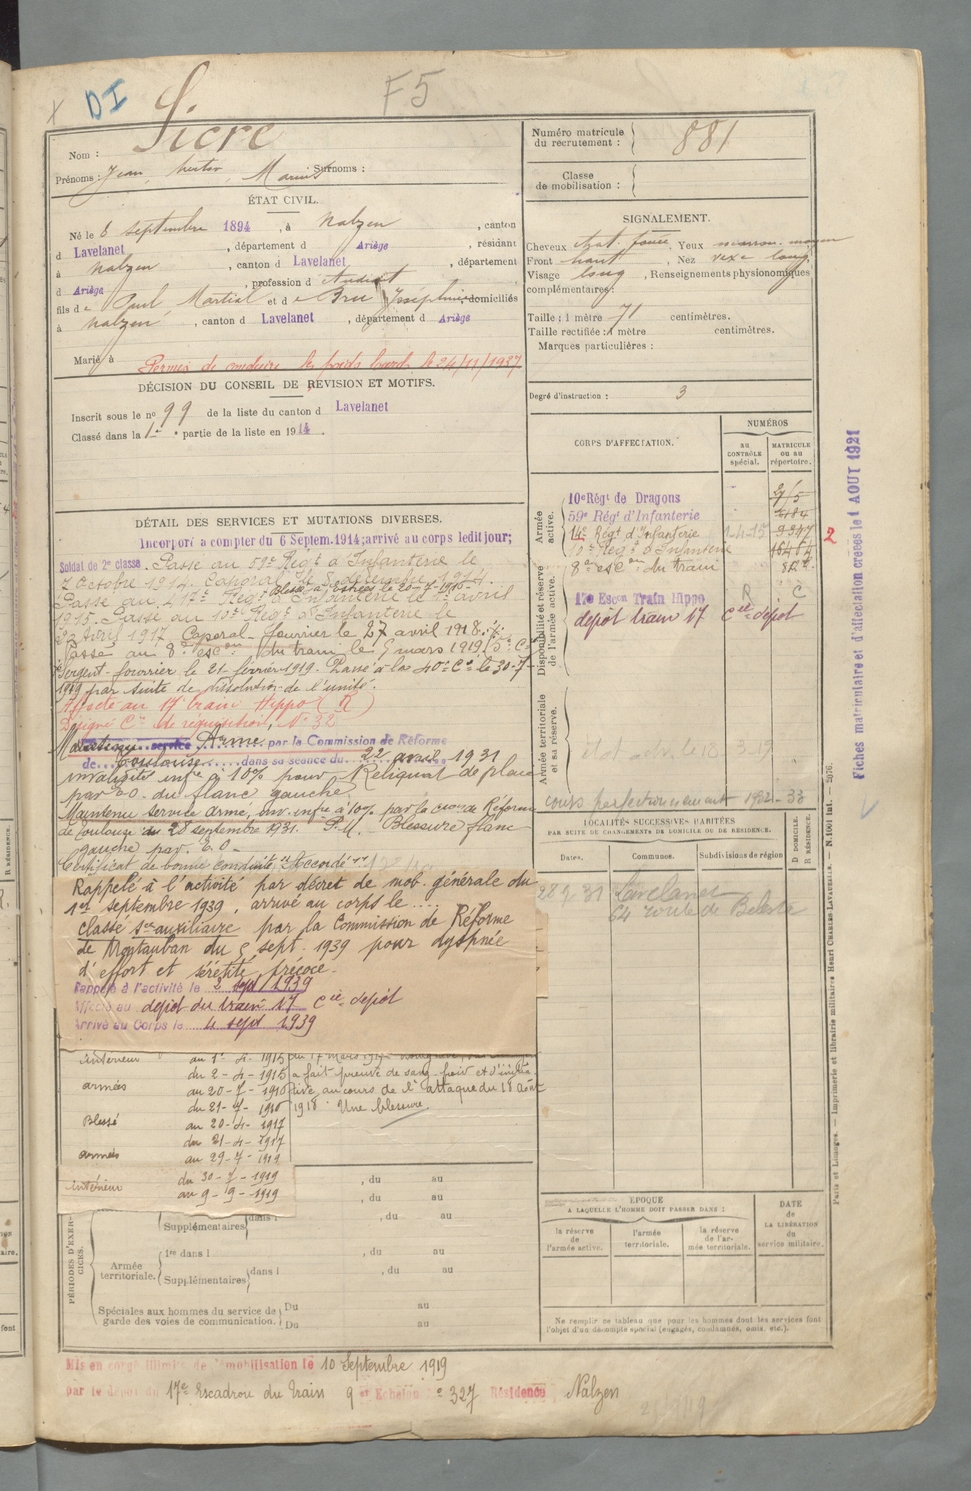 DI
F5
Nom : Sicre
Prénoms : Jean, Marius Surnoms :
ÉTAT CIVIL.
Né le 8 septembre 1894, à Nalzen, canton
d Lavelanet, département d Ariège, résidant
à Nalzen, canton d Lavelanet, département
d Ariège, profession d Etudiant
fils de Paul, Martial et de Joséphine domiciliés
à Nalzen, canton d Lavelanet, département d Ariège
Marié à
Permis de conduire les poids lourds le 24/11/1927
DÉCISION DU CONSEIL DE REVISION ET MOTIFS.
Inscrit sous le no 99 de la liste du canton d Lavelanet
Classé dans la 1re partie de la liste en 1914.
DÉTAIL DES SERVICES ET MUTATIONS DIVERSES.
Incorporé a compter du 6 Septem. 1914; arrivé au corps ledit jour;
Soldat de 2e classe. Passe au 59e Régt d'Infanterie le
7 octobre 1914. Caporal
Blessé
Passé au Régt d'Infanterie le 1er avril
1915. Passé au Régt d'Infanterie le
Avril 1917. Caporal-fourrier le 27 avril 1918.
Passé au 8e escon du train le 9 mars 1919 (5e Cie
Sergent-fourrier le 21 février 1919. Passé à la 40e Cie le 30-7-
1919 par suite de dissolution de l'unité.
Affecté au 17e train Hippo (R)
Désigné Cie de réquisition, No 32
Maintenu service Armé par la Commission de Réforme
de Toulouse dans sa séance du 22 avril 1931
invalidité infre à 10% pour Reliquat de plaie
par E.O. du flanc gauche
Maintenu service armé, inv. infre à 10% par la Cson de Réforme
de Toulouse du 28 septembre 1931. P.U. Blessure flanc
gauche par E.O.
Certificat de bonne conduite "Accordé"
Rappelé à l'activité par décret de mob. générale du
1er septembre 1939, arrivé au corps le ....
classé sce auxiliaire par la Commission de Réforme
de Montauban du 5 sept. 1939 pour dyspnée
d'effort et sénilité précoce.
Rappelé à l'activité le 2 sept 1939
Affecté au dépôt du train 17 Cie dépôt
Arrivé au Corps le 4 sept 1939
intérieur au 1er-4-1915
du 2-4-1915 a fait preuve de sang-froid et d'initia-
armées au 20-7-1916 tive au cours de l'attaque du 18 Août
du 21-7-1916 1918. Une blessure
Blessé au 20-4-1917
du 21-4-1917
armées au 29-7-1919
intérieur du 30-7-1919
au 9-9-1919
, du au
, du au
PÉRIODES D'EXERCICES.
Supplémentaires dans : , du au
Armée territoriale.
1re dans l , du au
Supplémentaires dans l , du au
Spéciales aux hommes du service de garde des voies de communication.
Du au
Du au
Mis en congé illimité de démobilisation le 10 Septembre 1919
par le dépôt du 17e Escadron du Train 9e Echelon No 327 Résidence Nalzen
Numéro matricule du recrutement : 881
Classe de mobilisation :
SIGNALEMENT.
Cheveux chat. foncé, Yeux marron moyen
Front haut, Nez vexe long
Visage long, Renseignements physionomiques
complémentaires :
Taille : 1 mètre 71 centimètres.
Taille rectifiée : 1 mètre centimètres.
Marques particulières :
Degré d'instruction : 3
CORPS D'AFFECTATION.
NUMÉROS
AU CONTRÔLE spécial.
MATRICULE ou au répertoire.
Armée active.
10e Régt de Dragons
59e Régt d'Infanterie
14e Régt d'Infanterie
10e Régt d'Infanterie
8e escon du train
Disponibilité et réserve de l'armée active.
17e Escon Train Hippo R C
dépôt train 17 Cie dépôt
Armée territoriale et sa réserve.
cours perfectionnement 1932-33
LOCALITÉS SUCCESSIVES HABITÉES
PAR SUITE DE CHANGEMENTS DE DOMICILE OU DE RÉSIDENCE.
Dates. Communes. Subdivisions de région D DOMICILE. R RÉSIDENCE.
Lavelanet
64 route de Belesta
ÉPOQUE
A LAQUELLE L'HOMME DOIT PASSER DANS :
la réserve de l'armée active.
l'armée territoriale.
la réserve de l'armée territoriale.
DATE de LA LIBÉRATION du service militaire.
Ne remplir ce tableau que pour les hommes dont les services font
l'objet d'un décompte spécial (engagés, condamnés, omis, etc.).
Fiches matriculaire et d'affectation créées le 1 AOUT 1921
2
Paris et Limoges. — Imprimerie et librairie militaires Henri CHARLES-LAVAUZELLE. — N. 1001 Int.